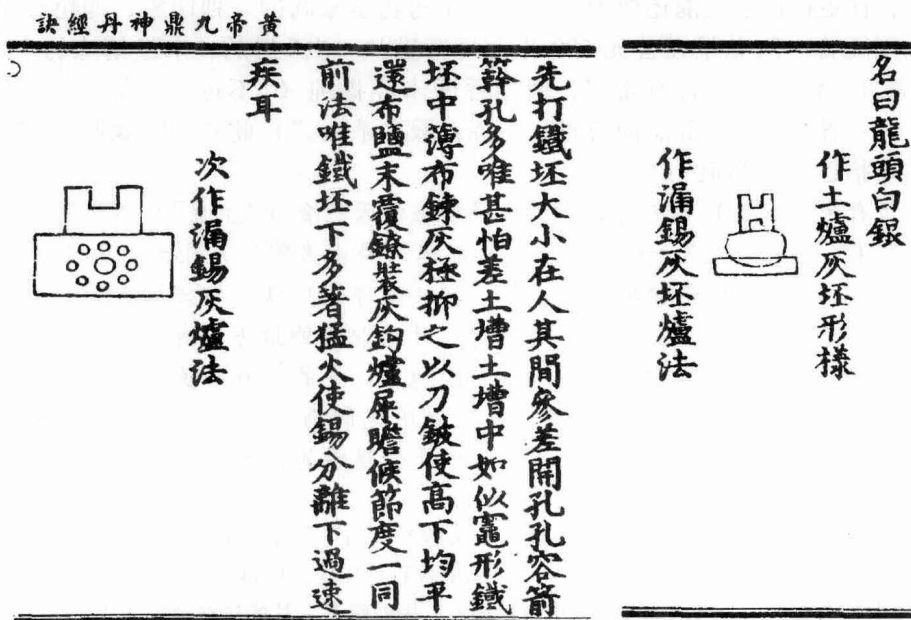 黄帝九鼎神丹經訣
名曰龍頭白銀
作土爐灰坯形樣
作漏錫灰坯爐法
先打鐵坯大小在人其間參差開孔孔容箭
簳孔多唯甚怕差土墰土墰中如似竈形鐵
坯中薄布鍊灰極抑之以刀鈹使高下均平
還布鹽末
裝灰鈎爐屎瞻候節度一同
前法唯鐵坯下多著猛火使錫分離下過速
疾耳
次作漏錫灰爐法